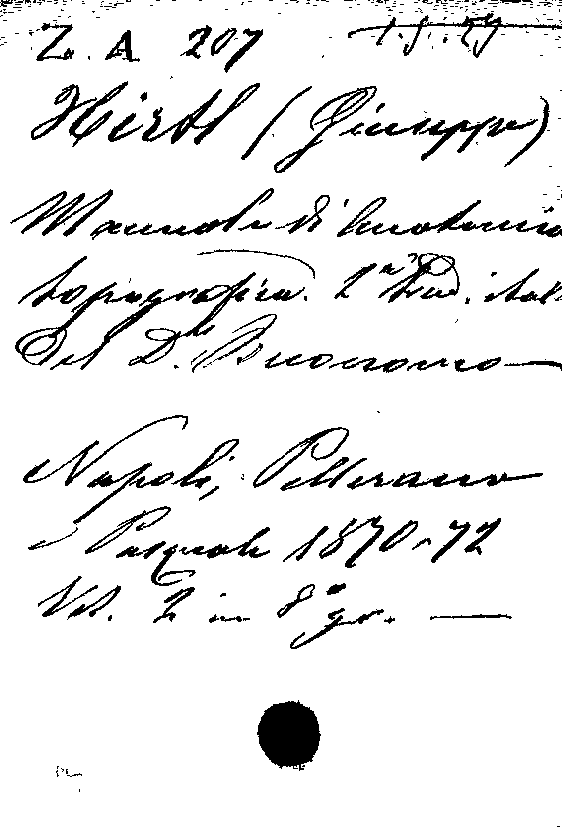 Z. A 207 1.9.29
Hirtl (Giuseppe)
Manuale di Anatomia
topografica. 2ª Trad. ital.
Del D.re Buonomo
Napoli, Pellerano
e Pasquale 1870-72
Vol. 2 in 8º gr. —